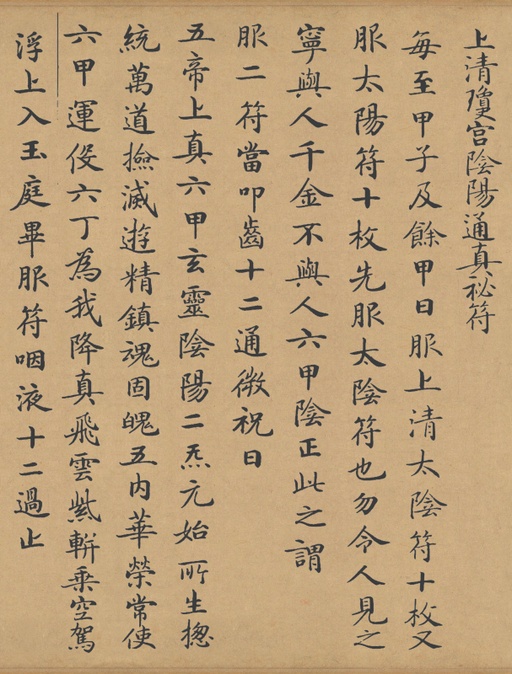 上清瓊宮陰陽通真祕符
每至甲子及餘甲日服上清太陰符十枚又
服太陽符十枚先服太陰符也勿令人見之
寧與人千金不與人六甲陰正此之謂
服二符當叩齒十二通微祝曰
五帝上真六甲玄靈陰陽二炁元始所生摠
統萬道撿滅遊精鎮魂固魄五內華榮常使
六甲運役六丁為我降真飛雲紫軿乗空駕
浮上入玉庭畢服符咽液十二過止